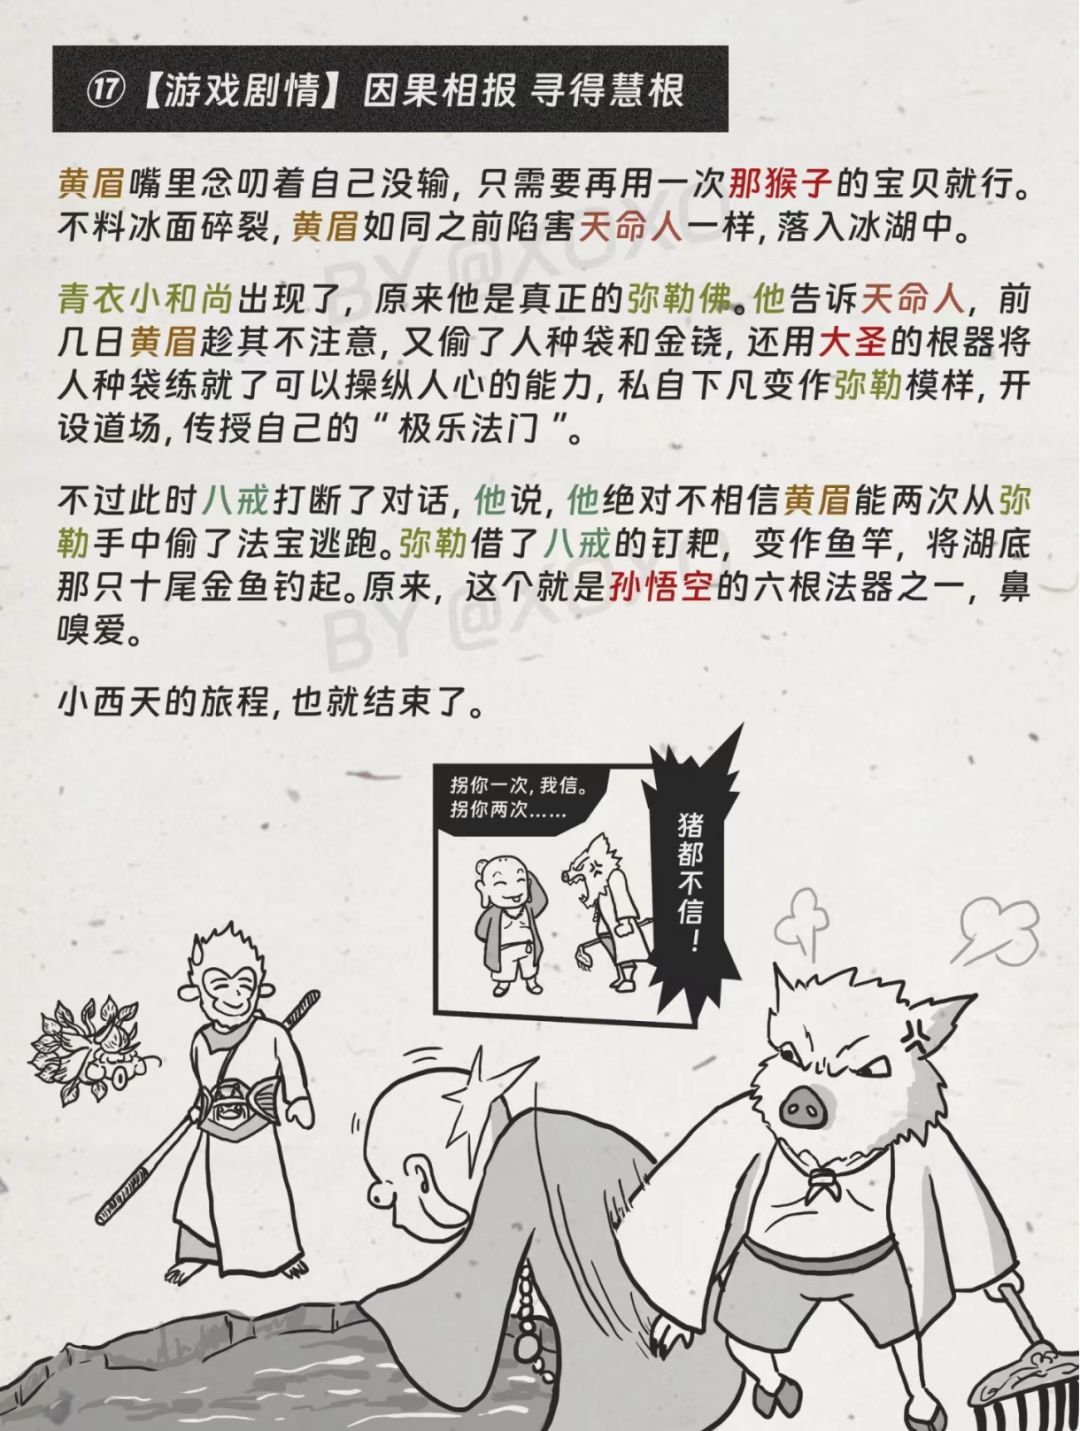 ⑰【游戏剧情】因果相报 寻得慧根
黄眉嘴里念叨着自己没输，只需要再用一次那猴子的宝贝就行。
不料冰面碎裂，黄眉如同之前陷害天命人一样，落入冰湖中。
青衣小和尚出现了，原来他是真正的弥勒佛。他告诉天命人，前
几日黄眉趁其不注意，又偷了人种袋和金铙，还用大圣的根器将
人种袋练就了可以操纵人心的能力，私自下凡变作弥勒模样，开
设道场，传授自己的“极乐法门”。
不过此时八戒打断了对话，他说，他绝对不相信黄眉能两次从弥
勒手中偷了法宝逃跑。弥勒借了八戒的钉耙，变作鱼竿，将湖底
那只十尾金鱼钓起。原来，这个就是孙悟空的六根法器之一，鼻
嗅爱。
小西天的旅程，也就结束了。
拐你一次，我信。
拐你两次……
猪都不信！
BY @XOXO
BY @XOXO